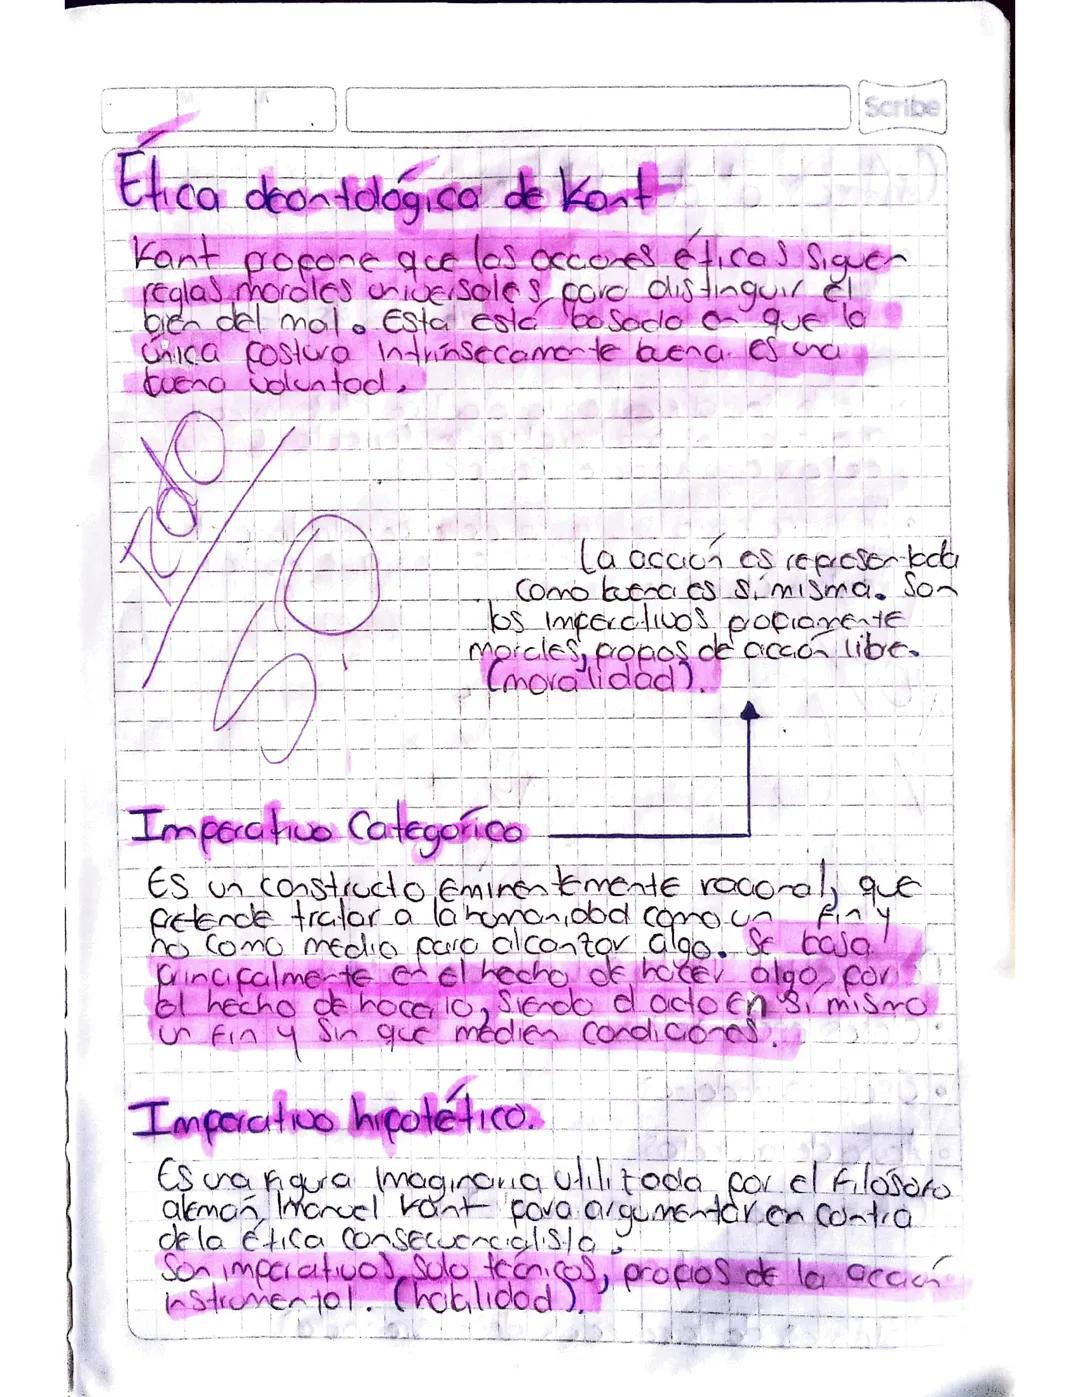 Scribe
Ética deontológica de Kant
Kant propone que las acciones éticas siguen
reglas morales universales para distinguir el
bien del mal. Esta está basado en que la
única postura intrínsecamente buena es una
buena voluntad.
La acción es representada
como buena es sí misma. Son
los imperativos propiamente
morales, propos de acción libre.
(moralidad).
Imperativo Categórico
Es un constructo eminentemente racional, que
pretende tratar a la humanidad como un fin y
no como medio para alcanzar algo. Se basa
principalmente en el hecho de hacer algo por
el hecho de hacerlo, siendo el acto en sí mismo
un fin y sin que medien condiciones.
Imperativo hipotético.
Es una figura imaginaria utilizada por el filósofo
alemán Imanuel Kant para argumentar en contra
de la ética consecuencialista.
Son imperativos solo técnicos, propios de la acción
instrumental. (habilidad).